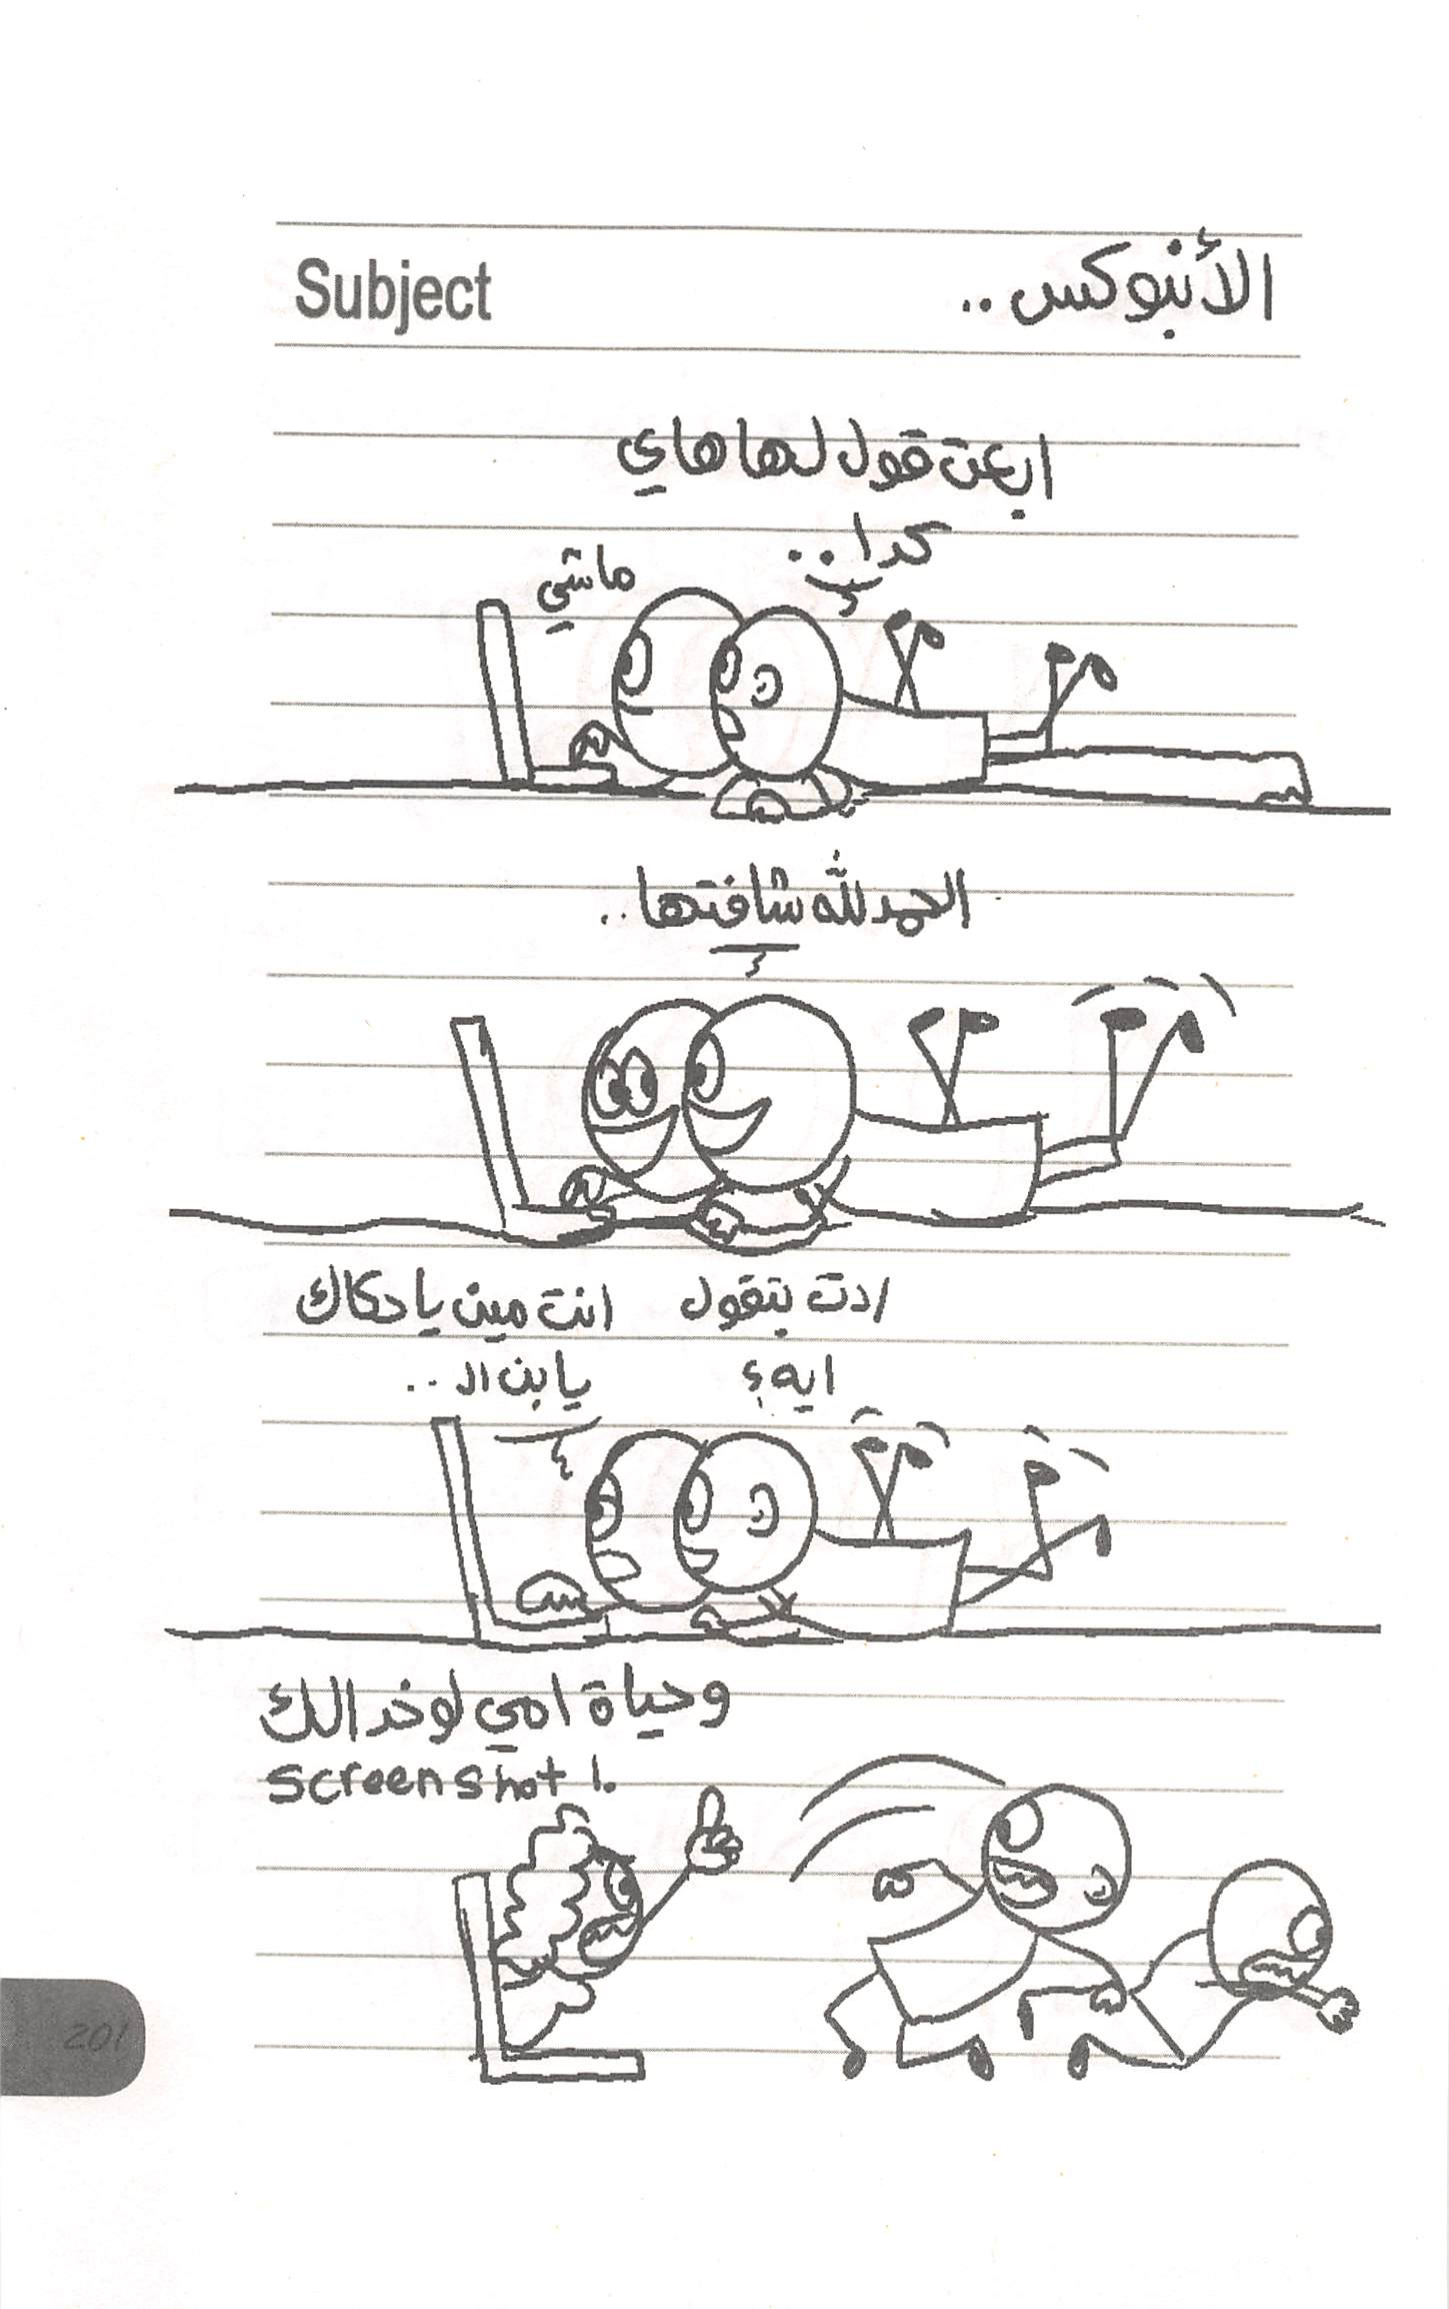 Subject
الأنبوكس ..
ابعت قول لها هاي
كدا ..
ماشي
الحمدلله شافتها ..
ادت بتقول
ايه ؟
انت مين يا حكاك
يا بن ال ..
وحياة امي لوخد الك
screenshot !.
201